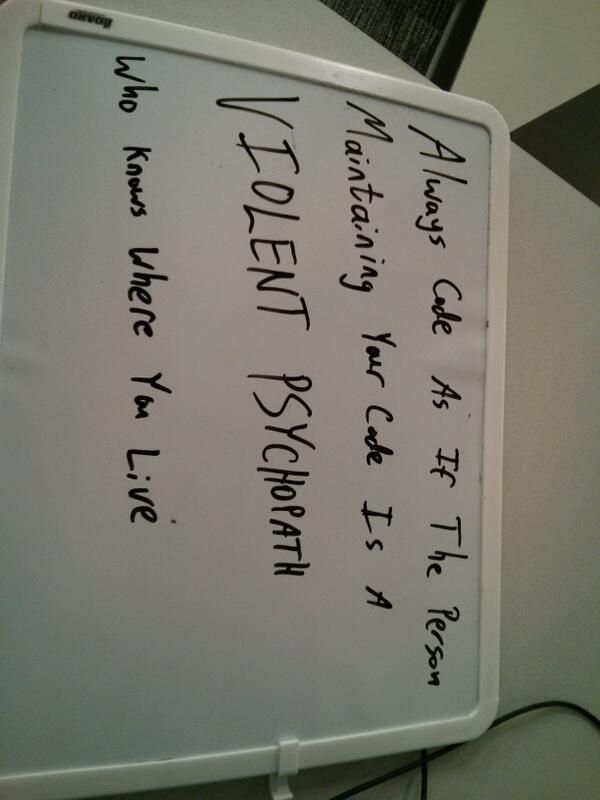 Always Code As If The Person
Maintaining Your Code Is A
VIOLENT PSYCHOPATH
Who Knows Where You Live